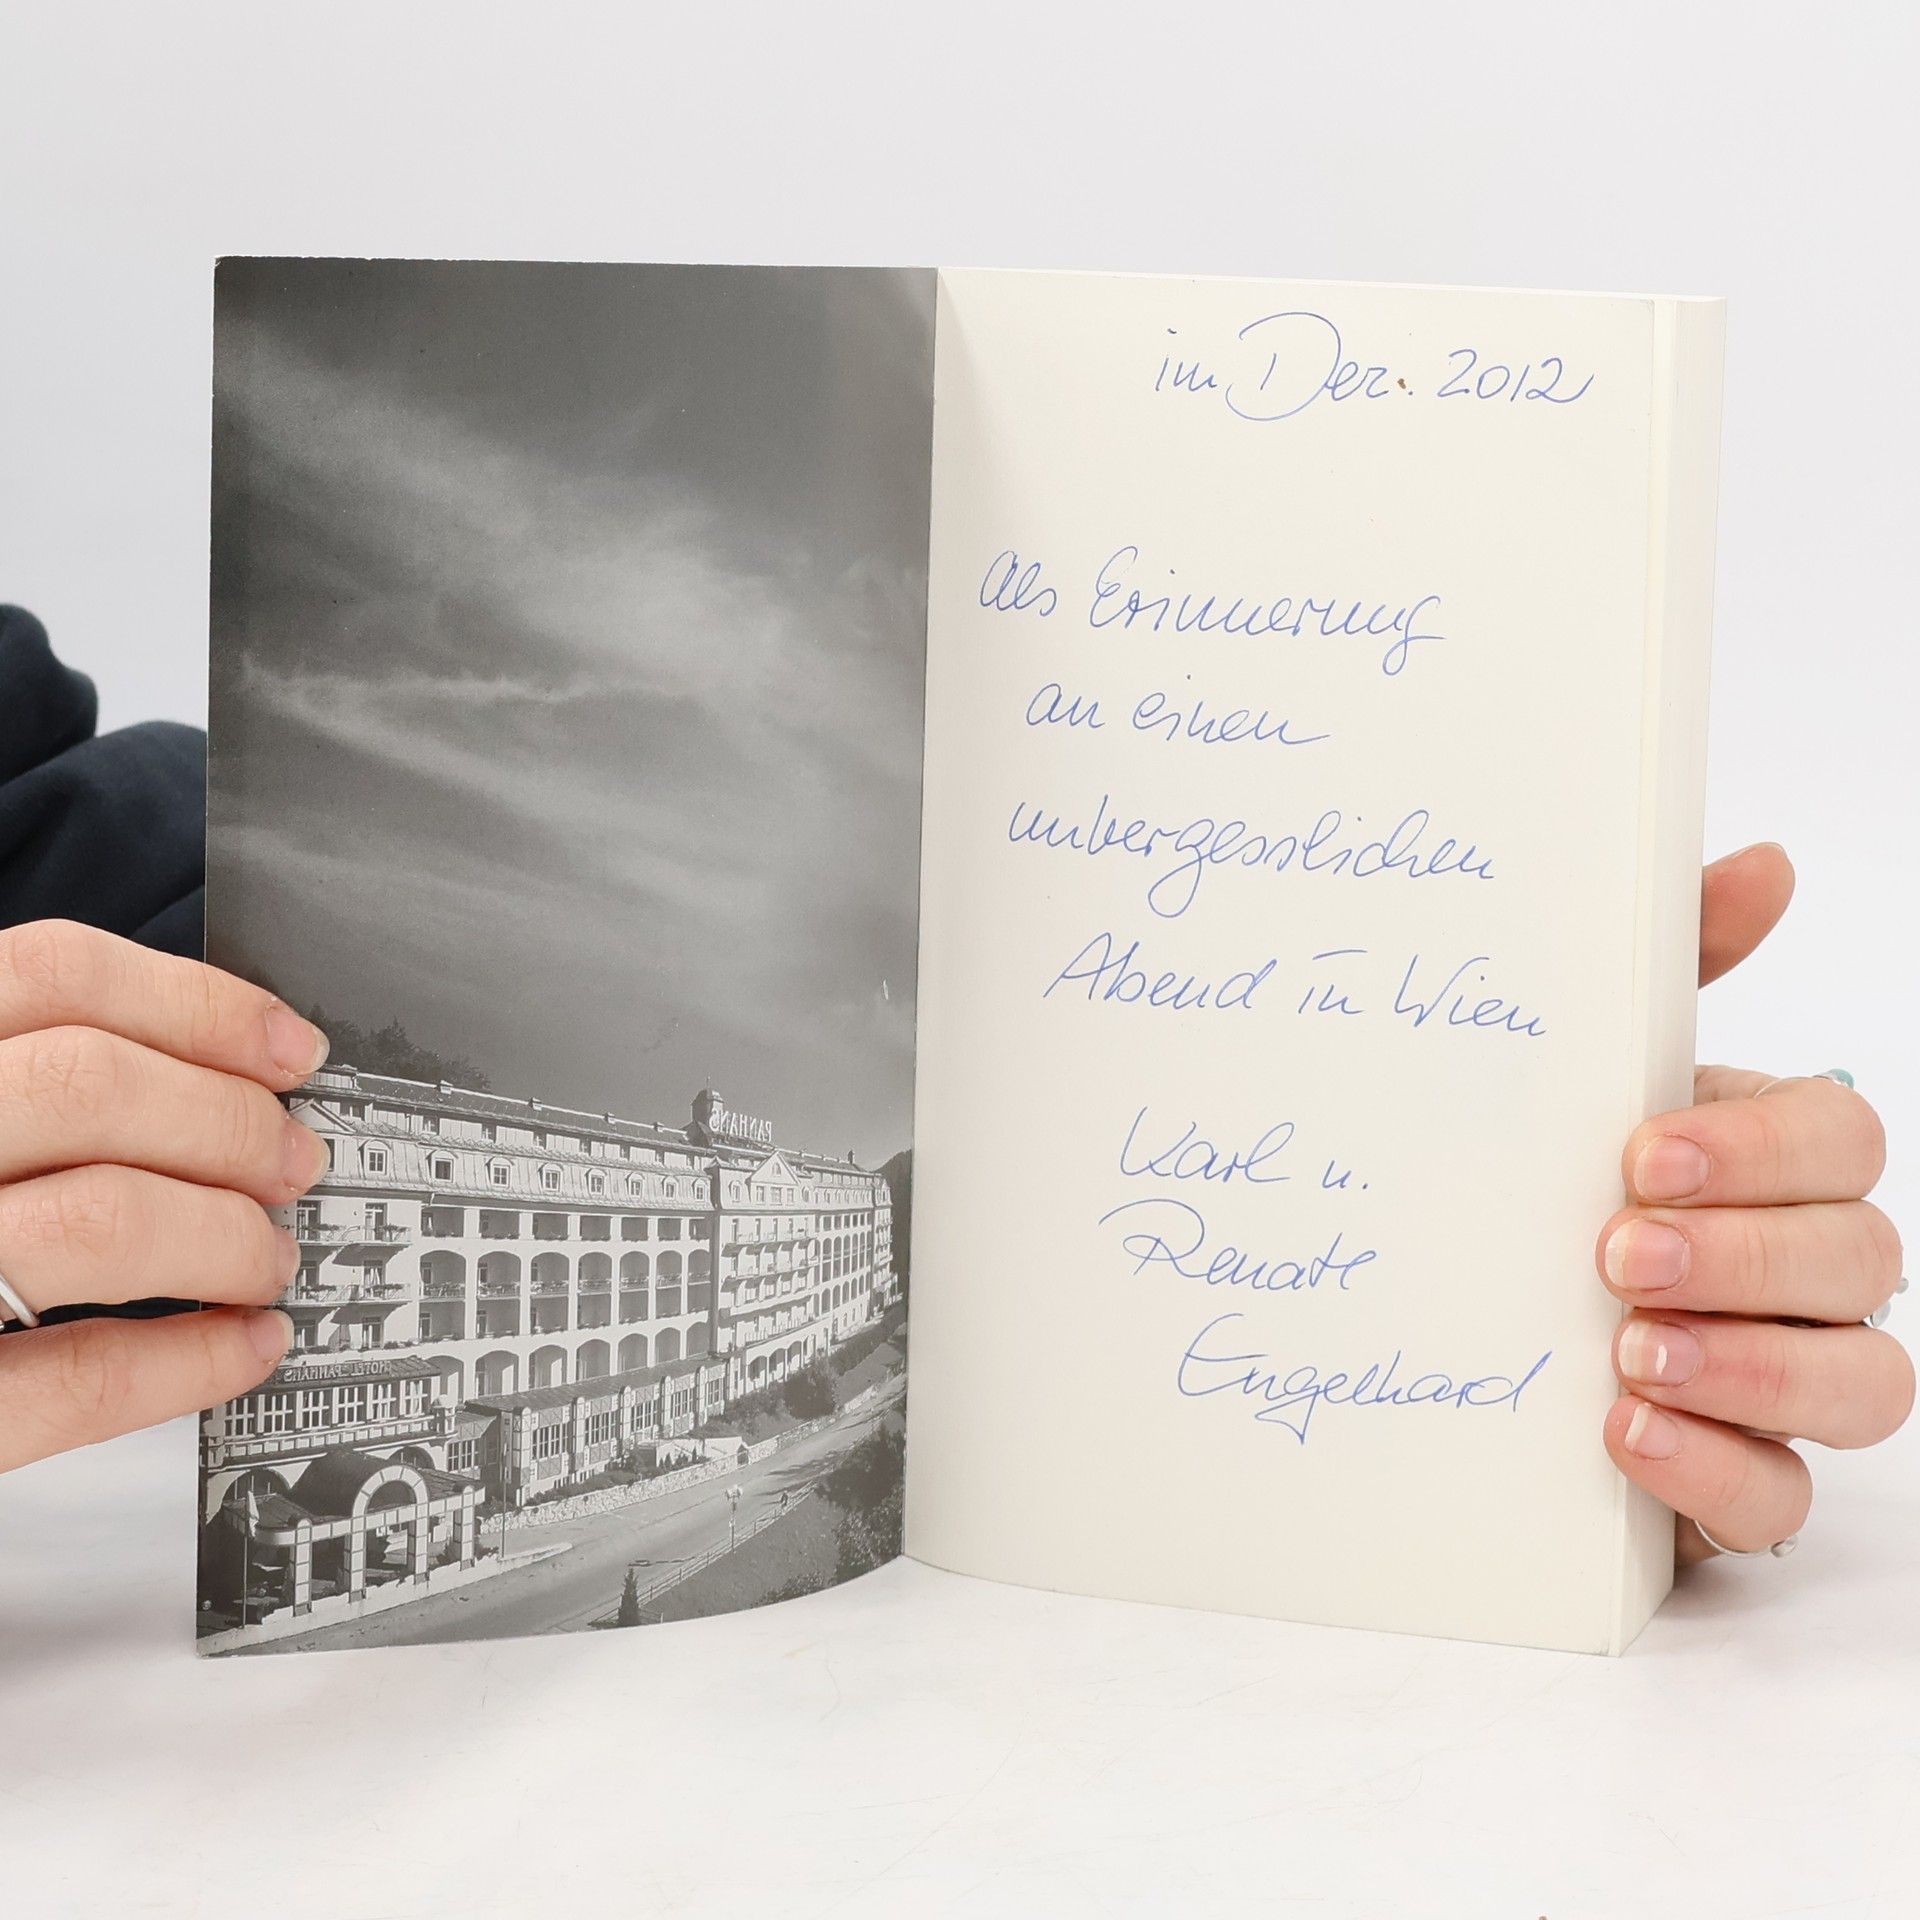 PANHANS
HOTEL PANHANS
im Dez. 2012
als Erinnerung
an einen
unvergesslichen
Abend in Wien
Karl u.
Renate
Engelhard